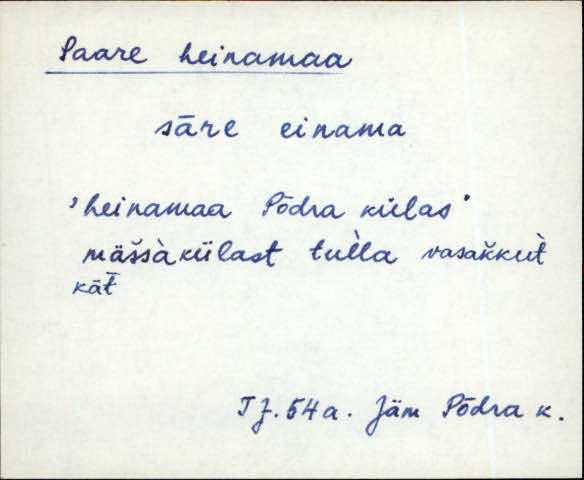 Saare heinamaa
säre einama
'heinamaa Põdra külas'
mäs̆sàkülast tulla vasak̆kut
kät
TJ. 54a. Jäm Põdra k.